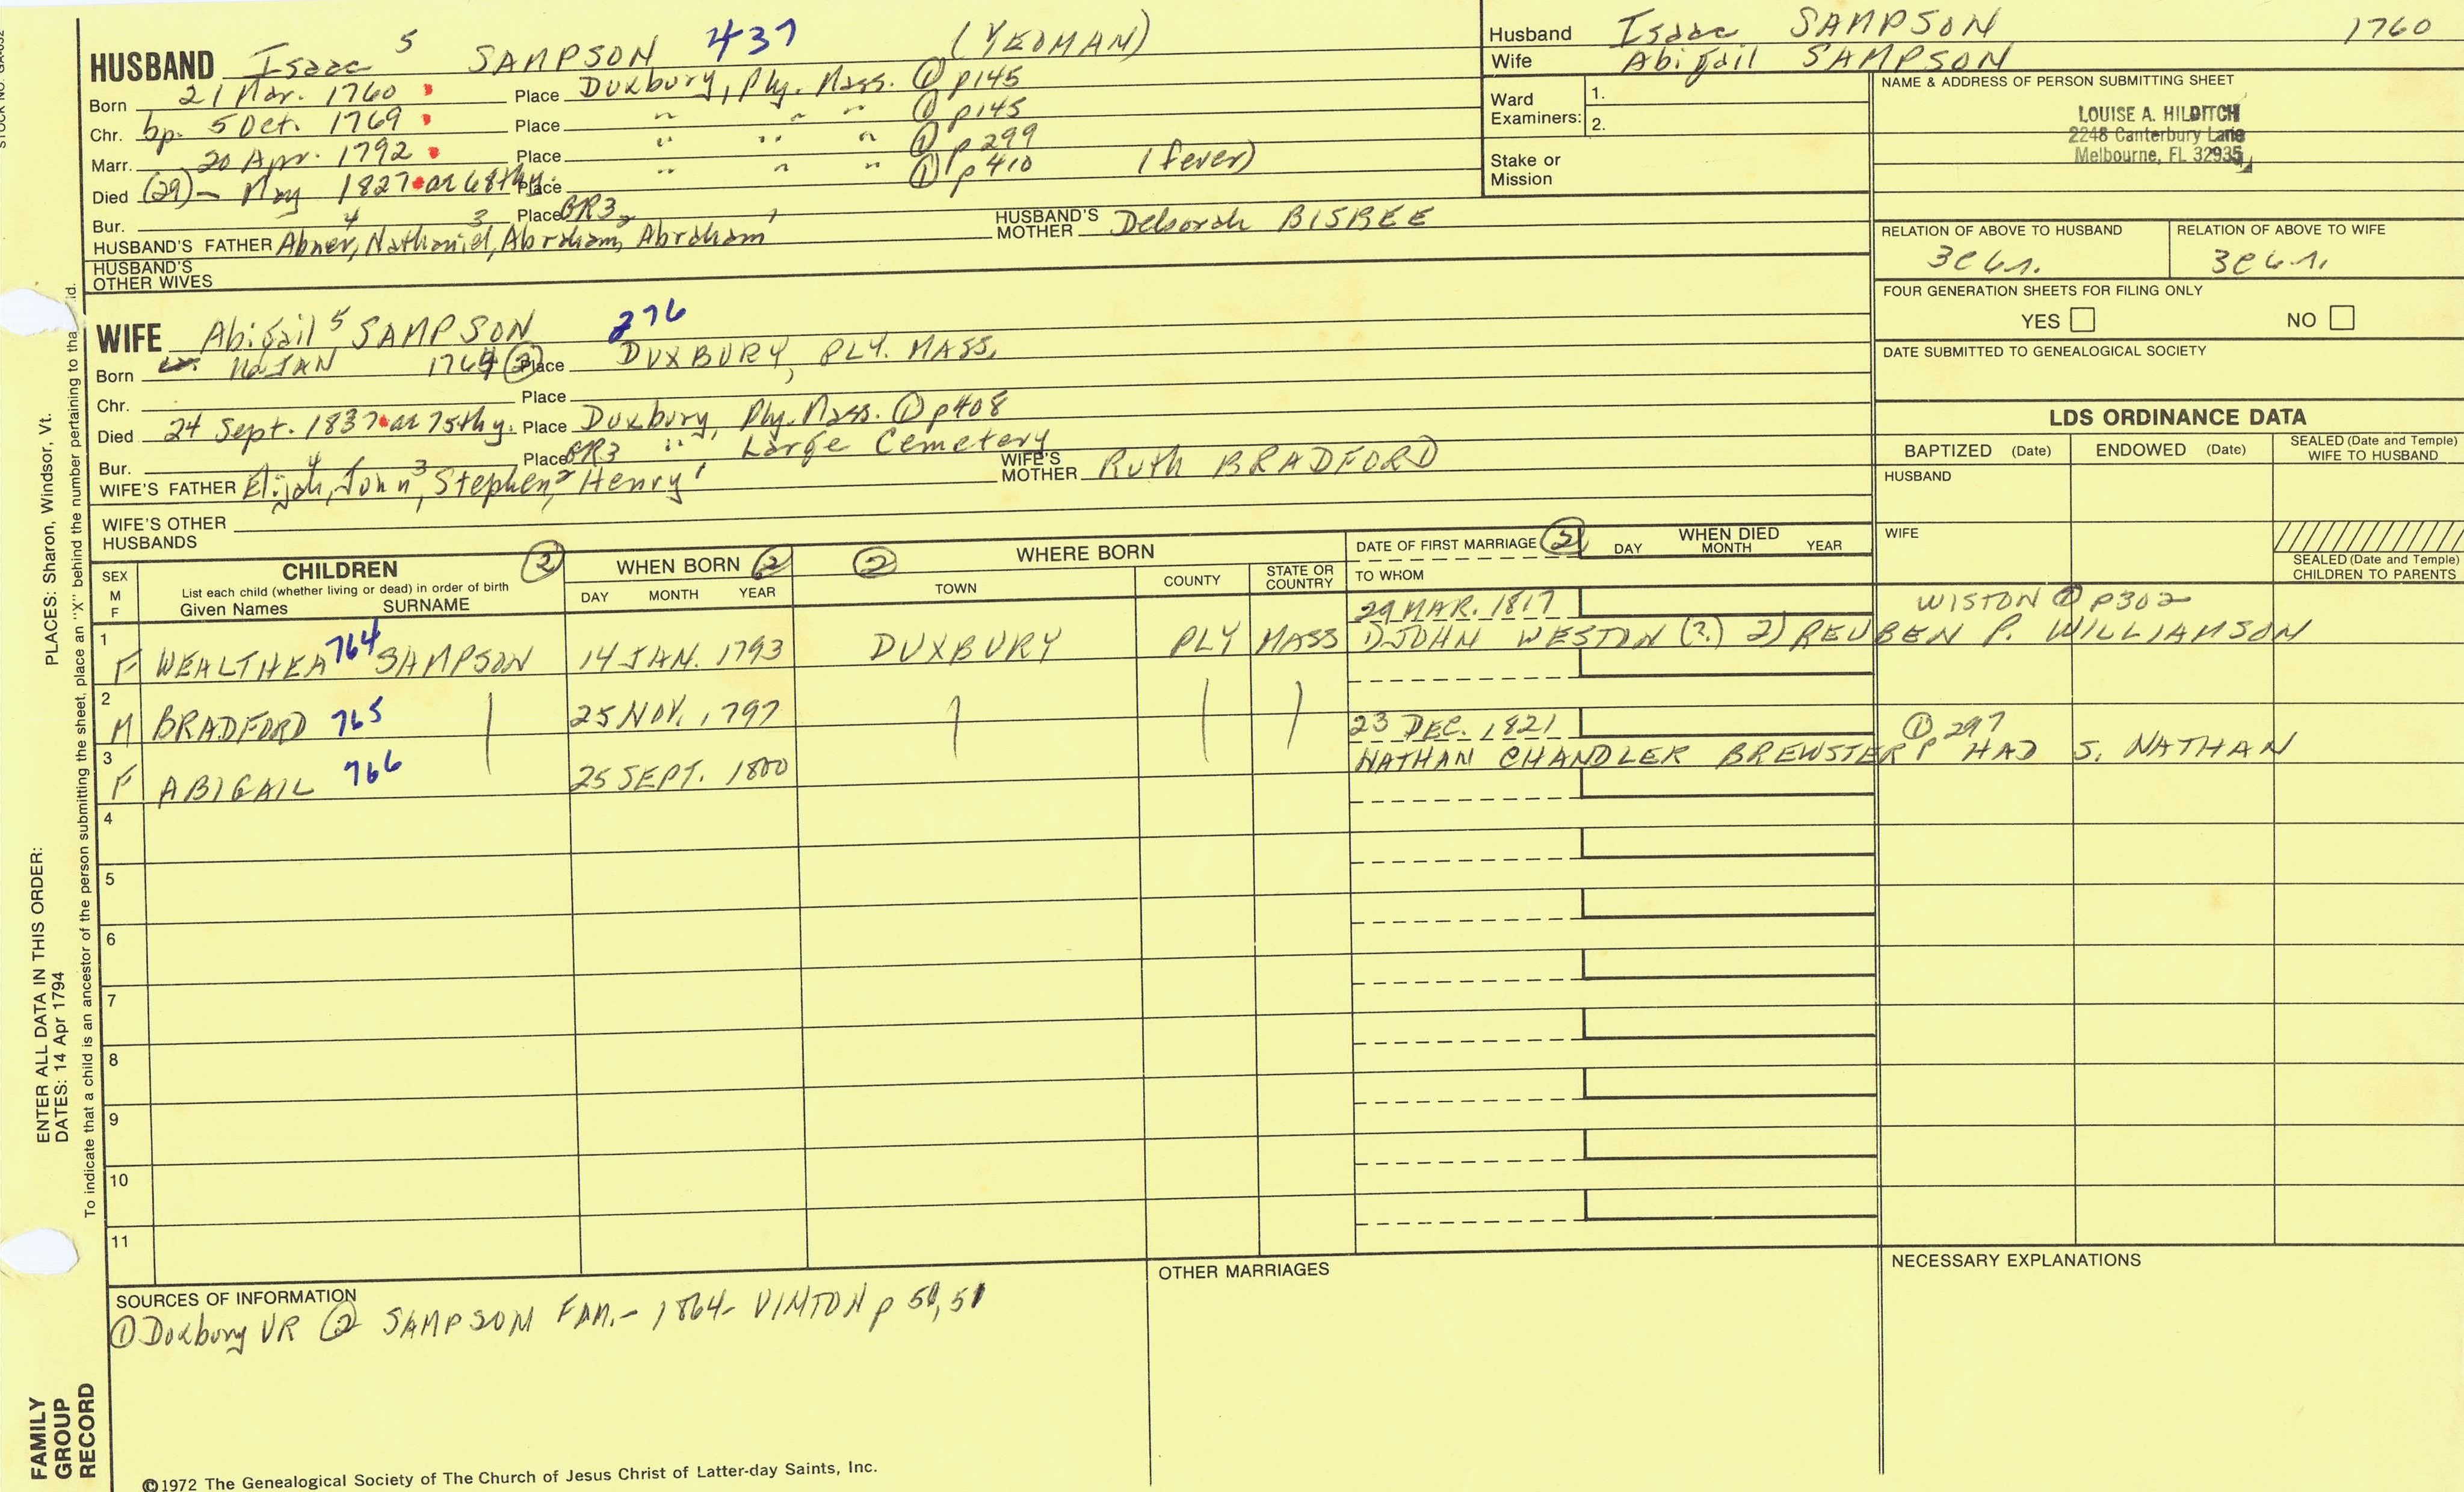 STOCK NO. GA-032
PLACES: Sharon, Windsor, Vt.
ENTER ALL DATA IN THIS ORDER:
DATES: 14 Apr 1794
To indicate that a child is an ancestor of the person submitting the sheet, place an "X" behind the number pertaining to tha id.
FAMILY GROUP RECORD
HUSBAND Isaac 5 SAMPSON 437 (YEOMAN)
Born 21 Mar. 1760 Place Duxbury, Ply. Mass. ① p145
Chr. bp. 5 Oct. 1769 Place " " " ① p145
Marr. 20 Apr. 1792 Place " " " ① p299
Died (29) - May 1827 ae 68thy. Place " " " ① p410 (fever)
Bur. Place GR3
HUSBAND'S FATHER Abner,4 Nathaniel,3 Abraham,2 Abraham1 HUSBAND'S MOTHER Deborah BISBEE
HUSBAND'S OTHER WIVES
WIFE Abigail 5 SAMPSON 276
Born 16 JAN 1764 ② Place DUXBURY, PLY. MASS.
Chr. Place
Died 24 Sept. 1837 ae 75thy. Place Duxbury, Ply. Mass. ① p408
Bur. Place GR3 " Large Cemetery
WIFE'S FATHER Elijah,4 John,3 Stephen,2 Henry1 WIFE'S MOTHER Ruth BRADFORD
WIFE'S OTHER HUSBANDS
Husband Isaac SAMPSON 1760
Wife Abigail SAMPSON
Ward Examiners: 1.
2.
Stake or Mission
NAME & ADDRESS OF PERSON SUBMITTING SHEET
LOUISE A. HILDITCH
2248 Canterbury Lane
Melbourne, FL 32935
RELATION OF ABOVE TO HUSBAND RELATION OF ABOVE TO WIFE
FOUR GENERATION SHEETS FOR FILING ONLY
YES NO
DATE SUBMITTED TO GENEALOGICAL SOCIETY
LDS ORDINANCE DATA
BAPTIZED (Date) ENDOWED (Date) SEALED (Date and Temple) WIFE TO HUSBAND
HUSBAND
WIFE
SEALED (Date and Temple) CHILDREN TO PARENTS
SEX M F CHILDREN ② WHEN BORN ② ② WHERE BORN DATE OF FIRST MARRIAGE ② WHEN DIED
List each child (whether living or dead) in order of birth
Given Names SURNAME DAY MONTH YEAR TOWN COUNTY STATE OR COUNTRY TO WHOM DAY MONTH YEAR
29 MAR. 1817 WISTON ① P302
1 F WEALTHEA 764 SAMPSON 14 JAN. 1793 DUXBURY PLY MASS 1) JOHN WESTON (?) 2) REUBEN P. WILLIAMSON
2 M BRADFORD 765 25 NOV. 1797
23 DEC. 1821 ① 297
3 F ABIGAIL 766 25 SEPT. 1800 NATHAN CHANDLER BREWSTER P HAD S. NATHAN
4
5
6
7
8
9
10
11
SOURCES OF INFORMATION
① Duxbury VR ② SAMPSON FAM. - 1864 - VINTON p 50, 51
OTHER MARRIAGES
NECESSARY EXPLANATIONS
©1972 The Genealogical Society of The Church of Jesus Christ of Latter-day Saints, Inc.